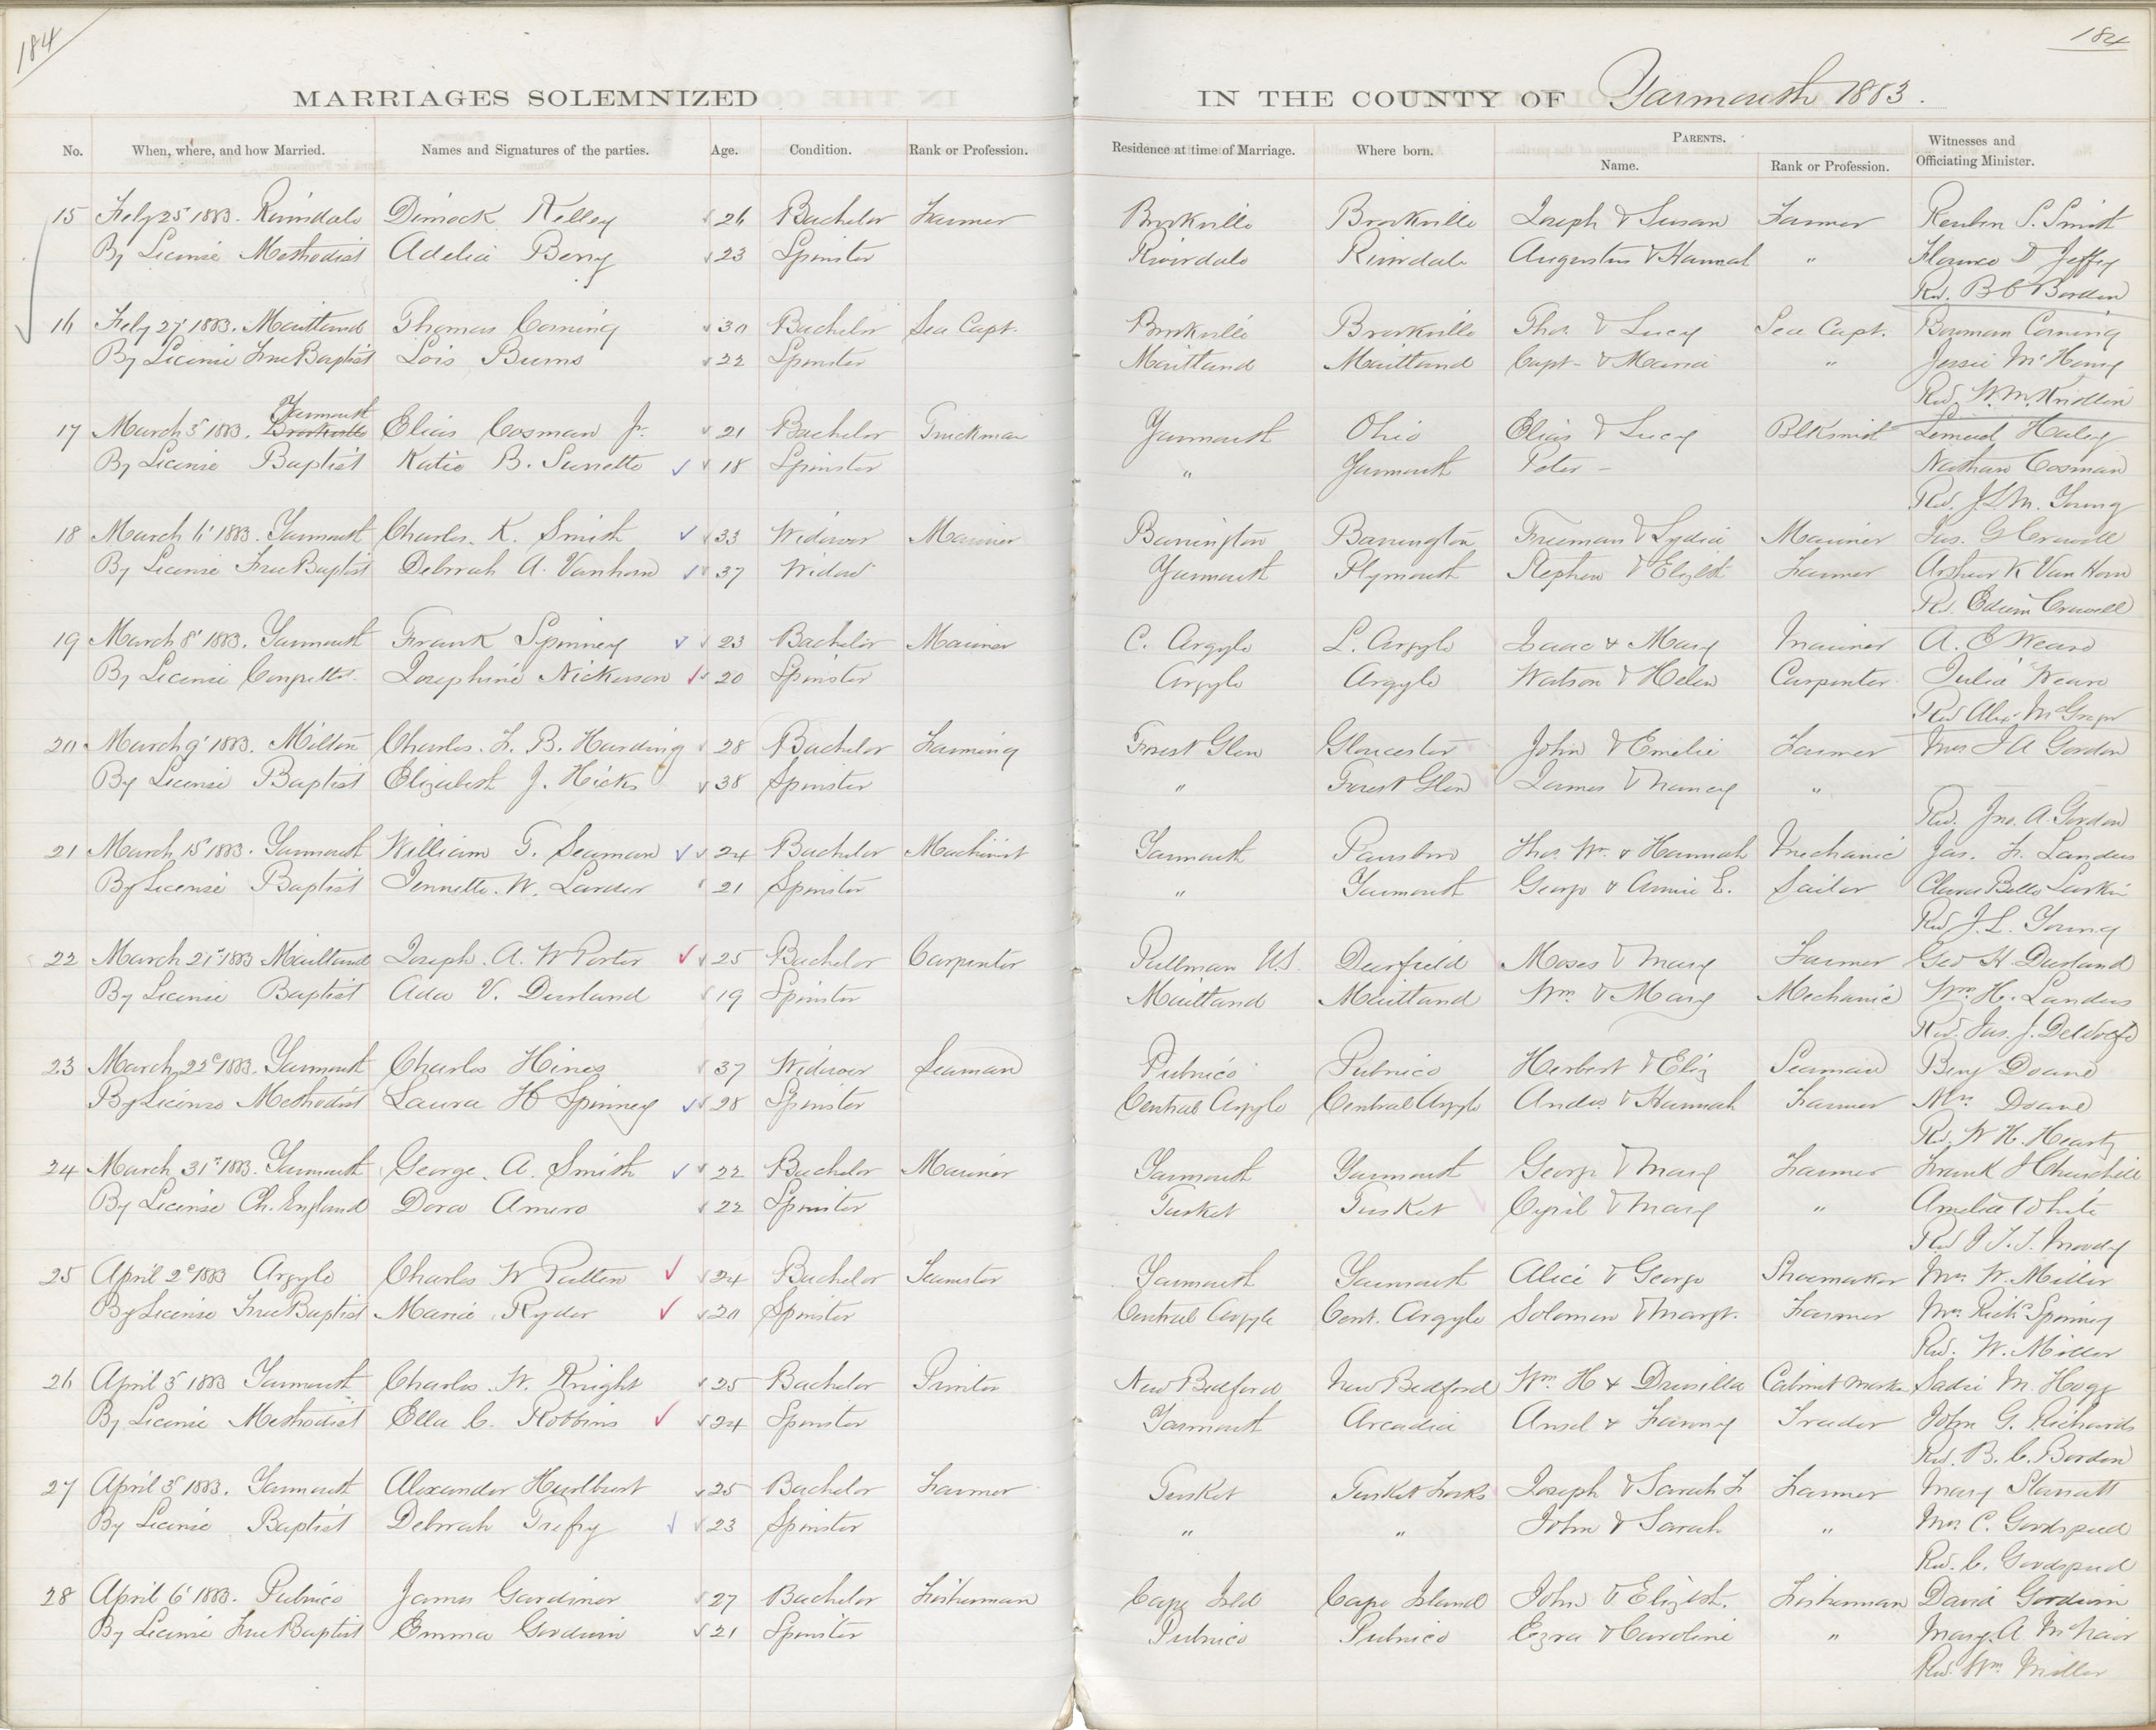 184
184
MARRIAGES SOLEMNIZED IN THE COUNTY OF Yarmouth 1883.
No. When, where, and how Married. Names and Signatures of the parties. Age. Condition. Rank or Profession. Residence at time of Marriage. Where born. PARENTS. Name. Rank or Profession. Witnesses and Officiating Minister.
15 Feby 25 1883. Riverdale Dimock Kelley 26 Bachelor Farmer Brookville Brookville Joseph & Susan Farmer Reuben S. Smith
By License Methodist Adelia Berry 23 Spinster Riverdale Riverdale Augustus & Hannah " Florence D Jeffry
Rev. B C Borden
16 Feby 27 1883. Maitland Thomas Corning 30 Bachelor Sea Capt. Brookville Brookville Thos. & Lucy Sea Capt. Bowman Corning
By License Free Baptist Lois Burns 22 Spinster Maitland Maitland Capt - & Maria " Jessie
Rev. W. M. Knollin
Yarmouth
17 March 5 1883. Brookville Elias Cosman Jr. 21 Bachelor Truckman Yarmouth Ohio Elias & Lucy Blksmith Lemuel Haley
By License Baptist Katie B. Surrette 18 Spinster " Yarmouth Peter - Nathan Cosman
Rev. J. L. M. Young
18 March 6 1883. Yarmouth Charles. K. Smith 33 Widower Mariner Barrington Barrington Freeman & Lydia Mariner Jas. G Crowell
By License Free Baptist Deborah A. Vanhorn 37 Widow Yarmouth Plymouth Stephen & Elizbt Farmer Arthur K Van Horn
Rev. Edwin Crowell
19 March 8 1883. Yarmouth Frank Spinney 23 Bachelor Mariner C. Argyle L. Argyle Isaac & Mary Mariner A. E Weare
By License Josephine Nickerson 20 Spinster Argyle Argyle Watson & Helen Carpenter Julia Weare
Rev Alex. McGregor
20 March 9 1883. Milton Charles. F. B. Harding 28 Bachelor Farming Forest Glen Gloucester John & Emilie Farmer Mrs J A Gordon
By License Baptist Elizabeth J. Hicks 38 Spinster " Forest Glen James & Nancy "
Rev. Jno. A. Gordon
21 March 15 1883. Yarmouth William T. Seaman 24 Bachelor Machinist Yarmouth Parrsboro Thos. Wm. & Hannah Mechanic Jas. F. Landers
By License Baptist Jennette. W. Larder 21 Spinster " Yarmouth George & Annie E. Sailor Clara Belle Larkin
Rev J. L. Young
22 March 21st 1883 Maitland Joseph. A. W Porter 25 Bachelor Carpenter Pullman U.S. Deerfield Moses & Mary Farmer Geo H. Durland
By License Baptist Ada V. Durland 19 Spinster Maitland Maitland Wm. & Mary Mechanic Wm. H. Landers
Rev. Jas. J. DeWolfe
23 March 22d 1883. Yarmouth Charles Hines 37 Widower Seaman Pubnico Pubnico Herbert & Eliz Seaman Benj Doane
By License Methodist Laura H Spinney 28 Spinster Central Argyle Central Argyle Andw. & Hannah Farmer Mrs. Doane
Rev. W H. Heartz
24 March 31st 1883. Yarmouth George. A. Smith 22 Bachelor Mariner Yarmouth Yarmouth George & Mary Farmer Frank J Churchill
By License Ch. England Dora Amero 22 Spinster Tusket Tusket Cyril & Mary " Amelia White
Rev J. T. T. Moody
25 April 2d 1883 Argyle Charles W Patten 24 Bachelor Teamster Yarmouth Yarmouth Alice & George Shoemaker Mrs. W. Miller
By License Free Baptist Maria Ryder 20 Spinster Central Argyle Cent. Argyle Solomon & Margt. Farmer Mrs. Richd. Spinney
Rev. W. Miller
26 April 3 1883 Yarmouth Charles. W. Knight 25 Bachelor Printer New Bedford New Bedford Wm. H & Drusilla Cabinet Maker Sadie M. Hogg
By License Methodist Ella C. Robbins 24 Spinster Yarmouth Arcadia Ansel & Fanny Trader John G. Richards
Rev. B. C. Borden
27 April 3 1883. Yarmouth Alexander Hurlburt 25 Bachelor Farmer Tusket Tusket Forks Joseph & Sarah F Farmer Mary Starratt
By License Baptist Deborah Trefry 23 Spinster " " John & Sarah " Mrs. C. Goodspeed
Rev. C. Goodspeed
28 April 6 1883. Pubnico James Gardiner 27 Bachelor Fisherman Cape Isld Cape Island John & Elizbt. Fisherman David Goodwin
By License Free Baptist Emma Goodwin 21 Spinster Pubnico Pubnico Ezra & Caroline " Mary. A McNair
Rev. Wm. Miller